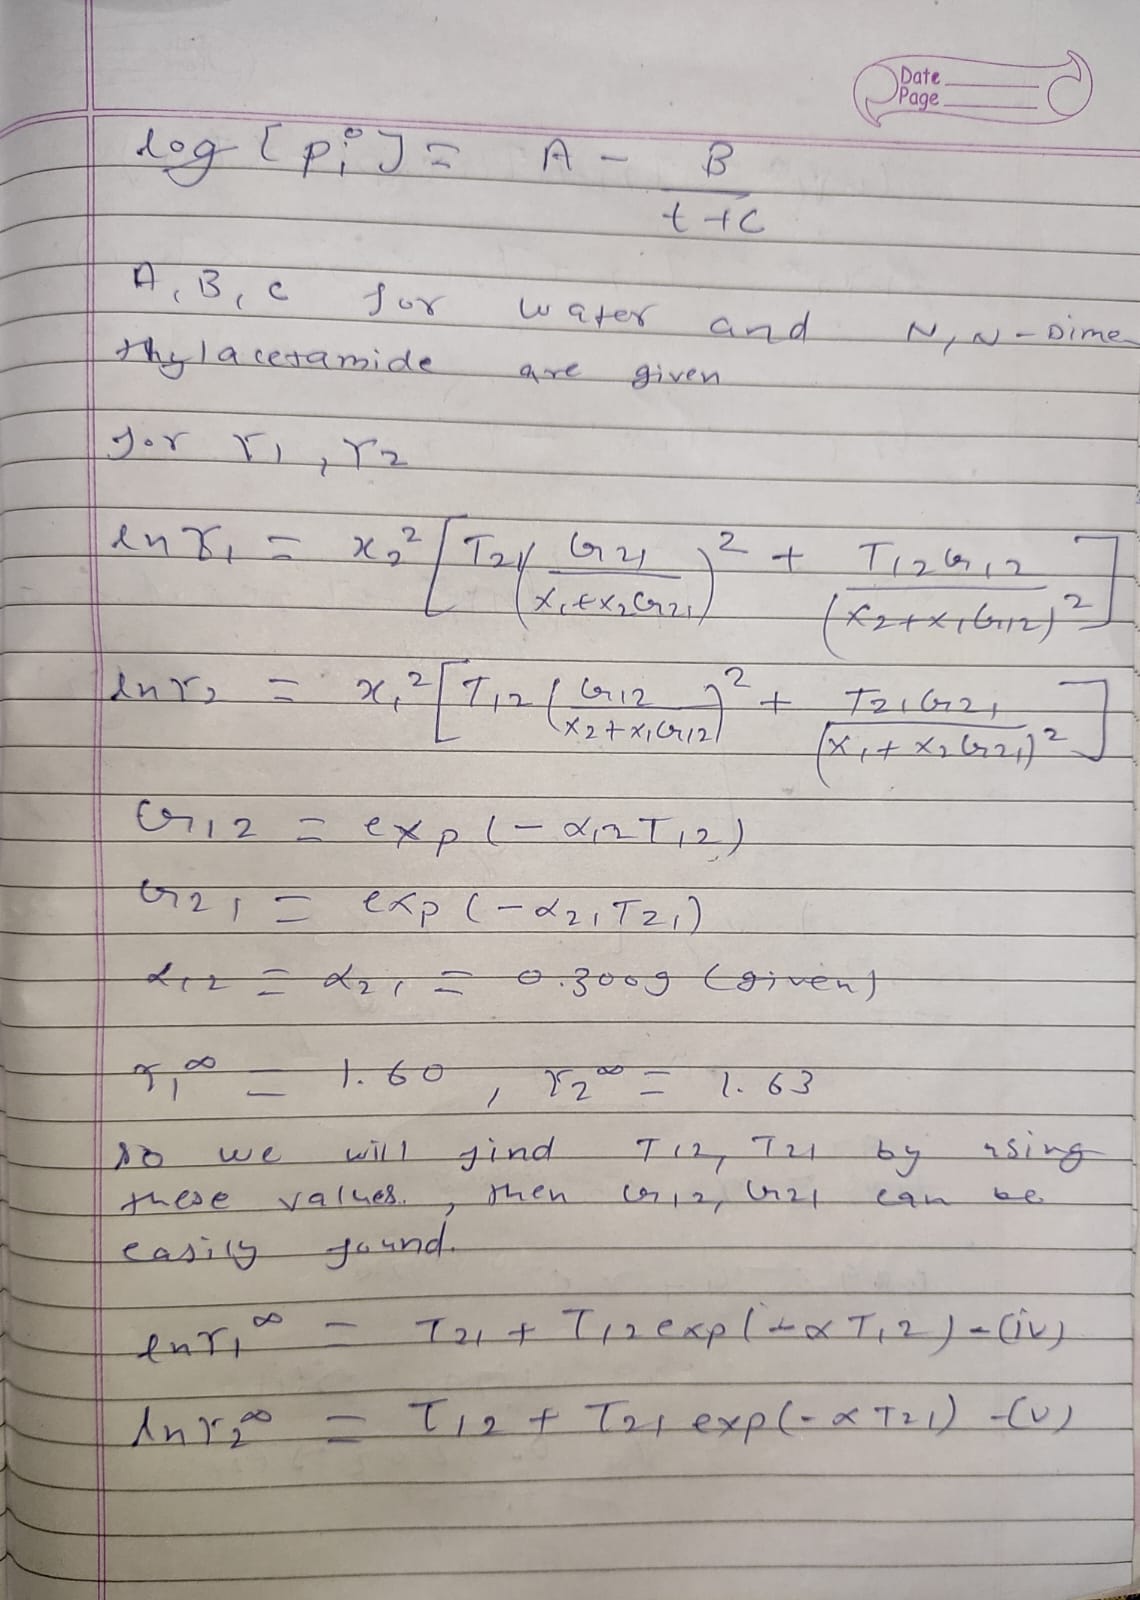 Date
Page
log [pᵢ°] = A - B/(t+C)
A, B, C for water and N,N-Dime
thylacetamide are given
for r₁, r₂
ln γ₁ = x₂² [T₂₁ (G₂₁/(x₁+x₂G₂₁))² + T₁₂G₁₂/(x₂+x₁G₁₂)²]
ln r₂ = x₁² [T₁₂ (G₁₂/(x₂+x₁G₁₂))² + T₂₁G₂₁/(x₁+x₂G₂₁)²]
G₁₂ = exp(-α₁₂T₁₂)
G₂₁ = exp(-α₂₁T₂₁)
α₁₂ = α₂₁ = 0.3009 (given)
r₁^∞ = 1.60, r₂^∞ = 1.63
so we will find T₁₂, T₂₁ by using
these values., then G₁₂, G₂₁ can be
easily found.
ln r₁^∞ = T₂₁ + T₁₂ exp(-α T₁₂) -(iv)
ln r₂^∞ = T₁₂ + T₂₁ exp(-α T₂₁) -(v)